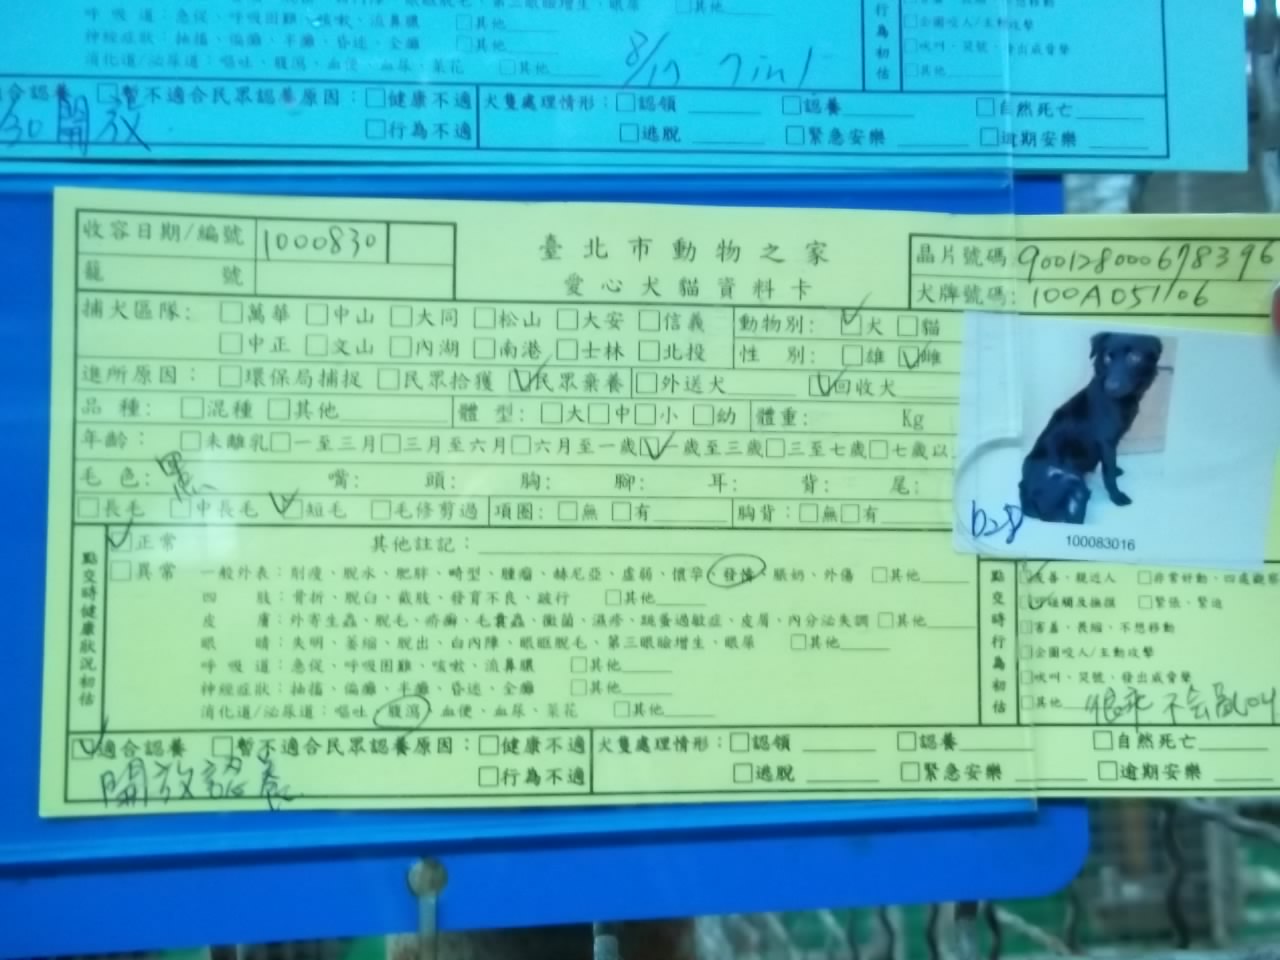 呼吸道：急促、呼吸困難、咳嗽、流鼻膿 □其他
神經症狀：抽搐、偏癱、半癱、昏迷、全癱 □其他
消化道/泌尿道：嘔吐、腹瀉、血便、血尿、菜花 □其他
8/17 7in1
行為初估
□企圖咬人/主動攻擊
□吠叫、哭號、發出威脅聲
□其他
合認養 □暫不適合民眾認養原因：□健康不適 犬隻處理情形：□認領 □認養 □自然死亡
□行為不適 □逃脫 □緊急安樂 □逾期安樂
/30 開放
收容日期/編號 1000830
籠 號
臺北市動物之家
愛心犬貓資料卡
晶片號碼 900128000678396
犬牌號碼：100A051106
捕犬區隊：□萬華 □中山 □大同 □松山 □大安 □信義 動物別：☑犬 □貓
□中正 □文山 □內湖 □南港 □士林 □北投 性 別：□雄 ☑雌
進所原因：□環保局捕捉 □民眾拾獲 ☑民眾棄養 □外送犬 ☑回收犬
品 種：□混種 □其他 體 型：□大□中□小 □幼 體重： Kg
年齡：□未離乳□一至三月□三月至六月□六月至一歲☑一歲至三歲□三至七歲□七歲以
毛 色：黑 嘴： 頭： 胸： 腳： 耳： 背： 尾：
□長毛 □中長毛 ☑短毛 □毛修剪過 項圈：□無 □有 胸背：□無□有
b28
100083016
點交時健康狀況初估
☑正常 其他註記：
□異常 一般外表：削瘦、脫水、肥胖、畸型、腫瘤、赫尼亞、虛弱、懷孕、發情、脹奶、外傷 □其他
四 肢：骨折、脫臼、截肢、發育不良、跛行 □其他
皮 膚：外寄生蟲、脫毛、疥癬、毛囊蟲、黴菌、濕疹、跳蚤過敏症、皮屑、內分泌失調 □其他
眼 睛：失明、萎縮、脫出、白內障、眼眶脫毛、第三眼瞼增生、眼屎 □其他
呼吸道：急促、呼吸困難、咳嗽、流鼻膿 □其他
神經症狀：抽搐、偏癱、半癱、昏迷、全癱 □其他
消化道/泌尿道：嘔吐、腹瀉、血便、血尿、菜花 □其他
點交時行為初估
☑友善、親近人 □非常好動、四處觀察
☑可碰觸及撫摸 □緊張、緊迫
□害羞、畏縮、不想移動
□企圖咬人/主動攻擊
□吠叫、哭號、發出威脅聲
□其他 很乖 不会亂叫
☑適合認養 □暫不適合民眾認養原因：□健康不適 犬隻處理情形：□認領 □認養 □自然死亡
□行為不適 □逃脫 □緊急安樂 □逾期安樂
開放認養